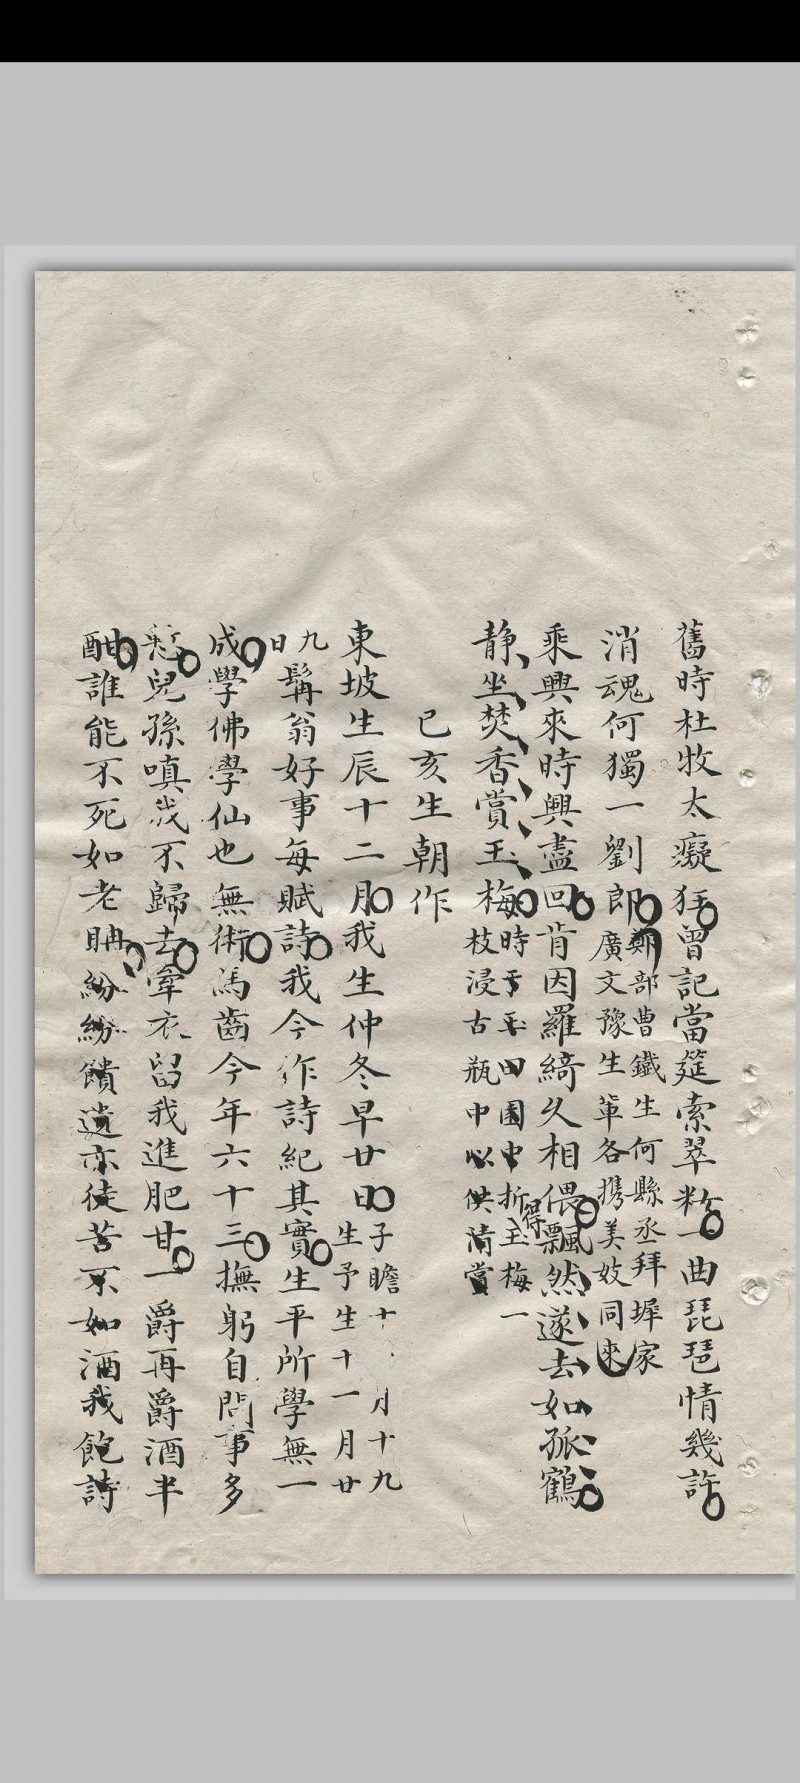 舊時杜牧太癡狂曾記當筵索翠粧一曲琵琶情幾許
消魂何獨一劉郎鄭部曹鐵生何縣丞拜墀家
廣文豫生輩各攜美妓同來
乘興來時興盡回肯因羅綺久相偎飄然遂去如孤鶴
靜坐焚香賞玉梅時于玉田園中折得玉梅一
枝浸古瓶中以供清賞
己亥生朝作
東坡生辰十二月我生仲冬早廿日子瞻十月十九
生予生十一月廿
九
日髯翁好事每賦詩我今作詩紀其實生平所學無一
成學佛學仙也無術馬齒今年六十三撫躬自問事多
愆兒孫嗔我不歸去牽衣留我進肥甘一爵再爵酒半
酣誰能不死如老聃紛紛饋遺亦徒苦不如酒我飽詩